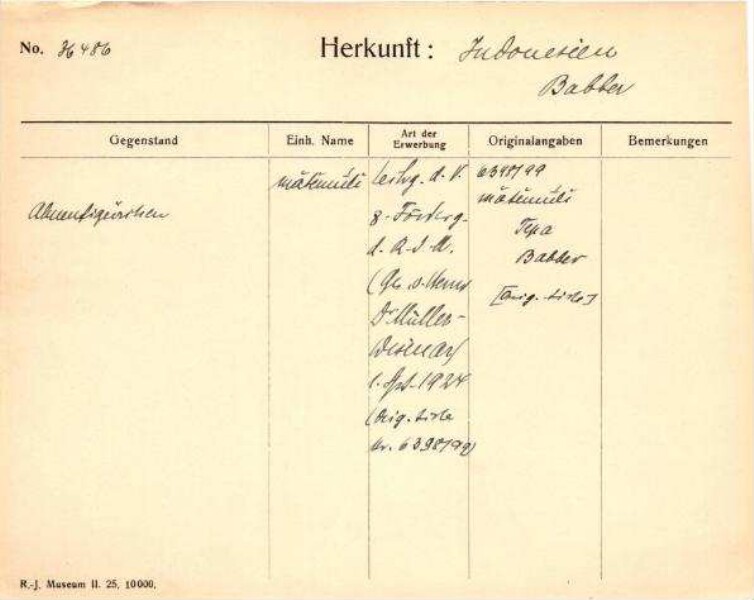 No. 36486
Herkunft: Indonesien
Babber
Gegenstand Einh. Name Art der Erwerbung Originalangaben Bemerkungen
Ahnenfigürchen
mātemūli
d. V.
z. Förderg.
d. R-J-M.
(Ges. v. Herrn
Dr Müller-
Wismar)
1. Spt. 1924
(Orig. Liste
Nr. 6398/99)
6398/99
mātemūli
Tepa
Babber
[Orig. Liste]
R.-J. Museum II. 25. 10000.